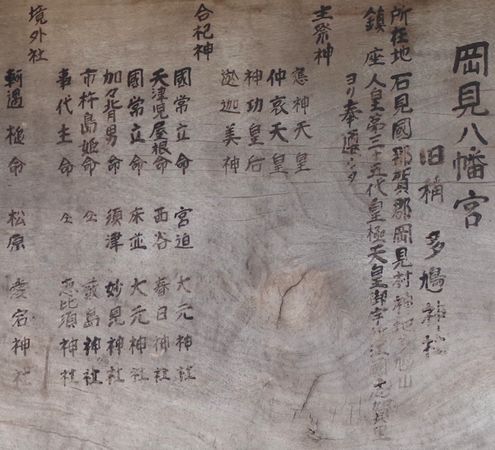 岡見八幡宮
旧稱 多鳩神社
所在地 石見國那賀郡岡見村
鎮座 人皇第三十五代皇極天皇御宇
ヨリ奉遷シタ
主祭神
應神天皇
仲哀天皇
神功皇后
迦迦美神
合祀神
國常立命 宮迫 大元神社
天津児屋根命 西谷 春日神社
國常立命 床並 大元神社
加々背男命 須津 妙見神社
市杵島姫命 仝 嚴島神社
事代主命 仝 恵比須神社
境外社
軻遇槌命 松原 愛宕神社